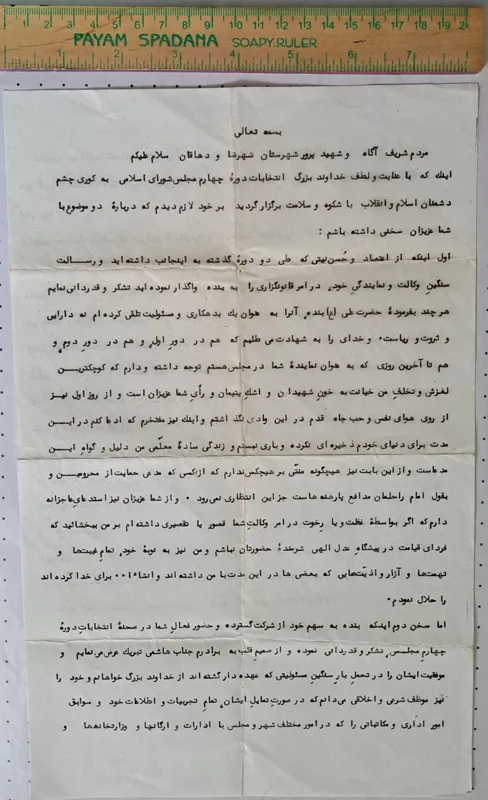 1 2 3 4 5 6 7 8 9 10 11 12 13 14 15 16 17 18 19 2
PAYAM SPADANA SOAPY.RULER
1 2 3 4 5 6 7
بسمه تعالی
مردم شریف آگاه و شهید پرور شهرستان شهرضا و دهاقان سلام علیکم
اینك که با عنایت و لطف خداوند بزرگ انتخابات دورهٔ چهارم مجلس شورای اسلامی به کوری چشم
دشمنان اسلام و انقلاب با شکوه و سلامت برگزار گردید بر خود لازم دیدم که دربارهٔ دو موضوع با
شما عزیزان سخنی داشته باشم :
اول اینکه از اعتماد و حُسن نیتی که طی دو دورهٔ گذشته به اینجانب داشته اید و رســالت
سنگین وکالت و نمایندگی خود، در امر قانونگزاری را به بنده واگذار نموده اید تشکر و قدردانی نمایم
هر چند بفرمودهٔ حضرت علی (ع) بنده، آنرا به عنوان یك بدهکاری و مسئولیت تلقی کرده ام نه دارایی
و ثروت و ریاست، و خدای را به شهادت می طلبم که هم در دور اول، و هم در دور دوم و
هم تا آخرین روزی که به عنوان نمایندهٔ شما در مجلس هستم توجه داشته و دارم که کوچکتریــن
لغزش و تخلف من خیانت به خون شهیدان و اشك یتیمان و رأی شما عزیزان است و از روز اول نیــز
از روی هوای نفس و حب جاه قدم در این وادی نگذاشتم و اینك نیز مفتخرم که ادعا کنم در ایــن
مدت برای دنیای خودم ذخیره ای نکرده و باری نبستم و زندگی سادهٔ معلّمی من دلیل و گواه ایــن
مدعاست و از این بابت نیز هیچگونه منّتی بر هیچکس ندارم که از کسی که مدعی حمایت از محرومیــن و
بقول امام راحلمان مدافع پابرهنه هاست جز این انتظاری نمی رود . و از شما عزیزان نیز استدعای عاجزانه
دارم که اگر بواسطهٔ غفلت و یا رخوت در امر وکالت شما قصور یا تقصیری داشته ام بر من ببخشائید که
فردای قیامت در پیشگاه عدل الهی شرمندهٔ حضورتان نباشم و من نیز به نوبهٔ خود، تمام غیبت‌ها و
تهمت‌ها و آزار و اذیت‌هایی که بعضی ها در این مدت با من داشته اند و انشاء ا... برای خدا کرده اند
را حلال نمودم .
اما سخن دوم اینکه بنده به سهم خود از شرکت گسترده و حضور فعال شما در صحنهٔ انتخابات دورهٔ
چهارم مجلس، تشکر و قدردانی نموده و از صمیم قلب به برادرم جناب هاشمی تبریك عرض می نمایم و
موفقیت ایشان را در تحمل بار سنگین مسئولیتی که عهده دار گشته اند از خداوند بزرگ خواهانم و خود را
نیز موظف شرعی و اخلاقی می دانم که در صورت تمایل ایشان، تمام تجربیات و اطلاعات خود و سوابق
امور اداری و مکاتباتی را که در امور مختلف شهر و مجلس با ادارات و ارگانها و وزارتخانه‌ها و